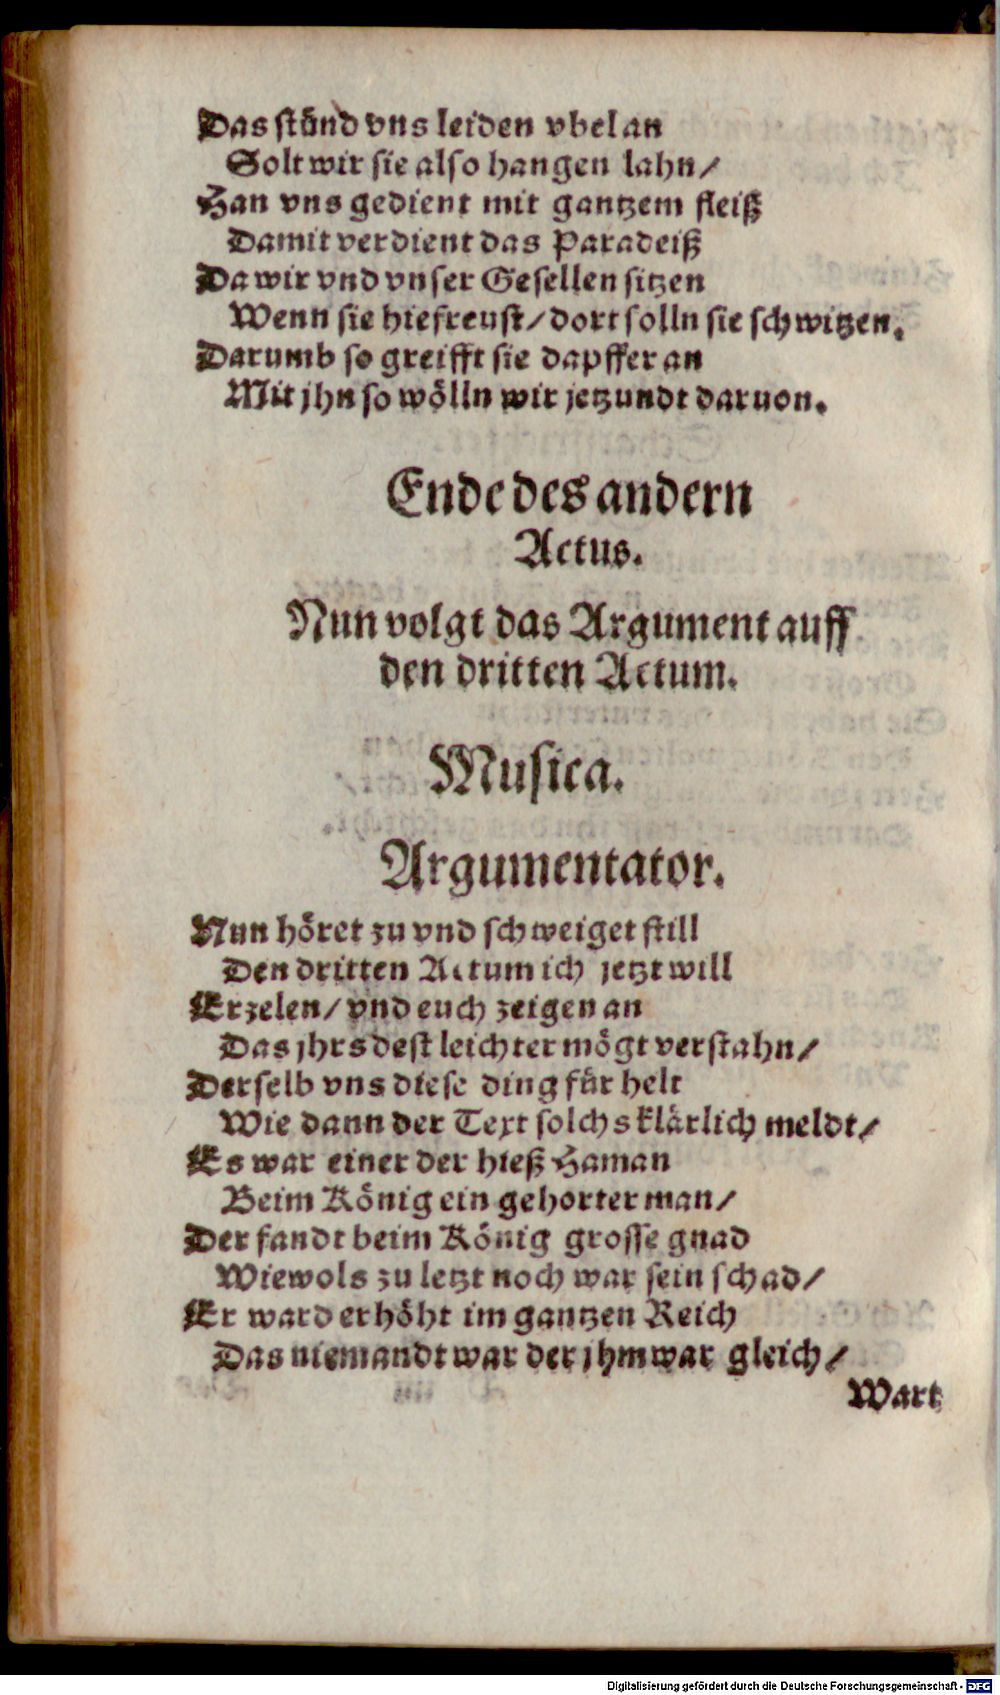 Das stünd vns leiden vbel an
Solt wir sie also hangen lahn/
Han vns gedient mit gantzem fleiß
Damit verdient das Paradeiß
Da wir vnd vnser Gesellen sitzen
Wenn sie hie freust/ dort solln sie schwitzen.
Darumb so greifft sie dapffer an
Mit jhn so wölln wir jetzundt daruon.
Ende des andern
Actus.
Nun volgt das Argument auff
den dritten Actum.
Musica.
Argumentator.
Nun höret zu vnd schweiget still
Den dritten Actum ich jetzt will
Erzelen/ vnd euch zeigen an
Das jhrs dest leichter mögt verstahn/
Derselb vns diese ding für helt
Wie dann der Text solchs klärlich meldt/
Es war einer der hieß Haman
Beim König ein gehorter man/
Der fandt beim König grosse gnad
Wiewols zu letzt noch war sein schad/
Er ward erhöht im gantzen Reich
Das niemandt war der jhm war gleich/
Wartz
Digitalisierung gefördert durch die Deutsche Forschungsgemeinschaft - DFG